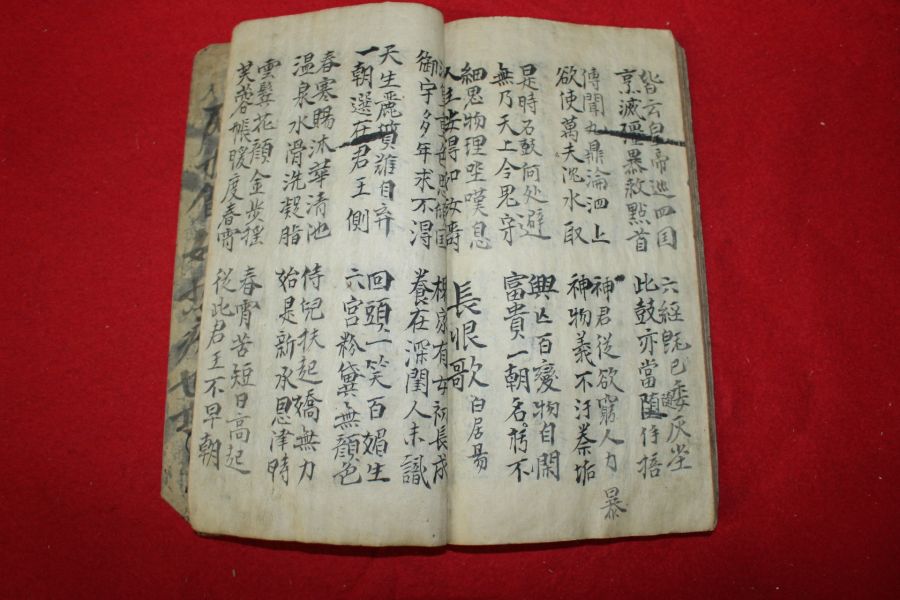 皆云皇帝巡四国
烹滅彊暴救黔首
六經旣已委灰尘
此鼓亦當隨掊
傳聞九鼎淪泗上
欲使萬夫沉水取
神君從欲窮人力
暴
神物義不汙秦垢
是時石鼓何處避
無乃天上令鬼守
興亡百變物自閑
富貴一朝名朽不
細思物理坐嘆息
人生安得如汝壽
長恨歌 白居易
漢皇重色思傾国
御宇多年求不得
楊家有女初長成
養在深閨人未識
天生麗質難自弃
一朝選在君王側
回頭一笑百媚生
六宮粉黛無顔色
春寒賜沐華清池
温泉水滑洗凝脂
侍兒扶起嬌無力
始是新承恩澤時
雲鬂花顔金步搖
芙蓉帳暖度春宵
春宵苦短日高起
從此君王不早朝